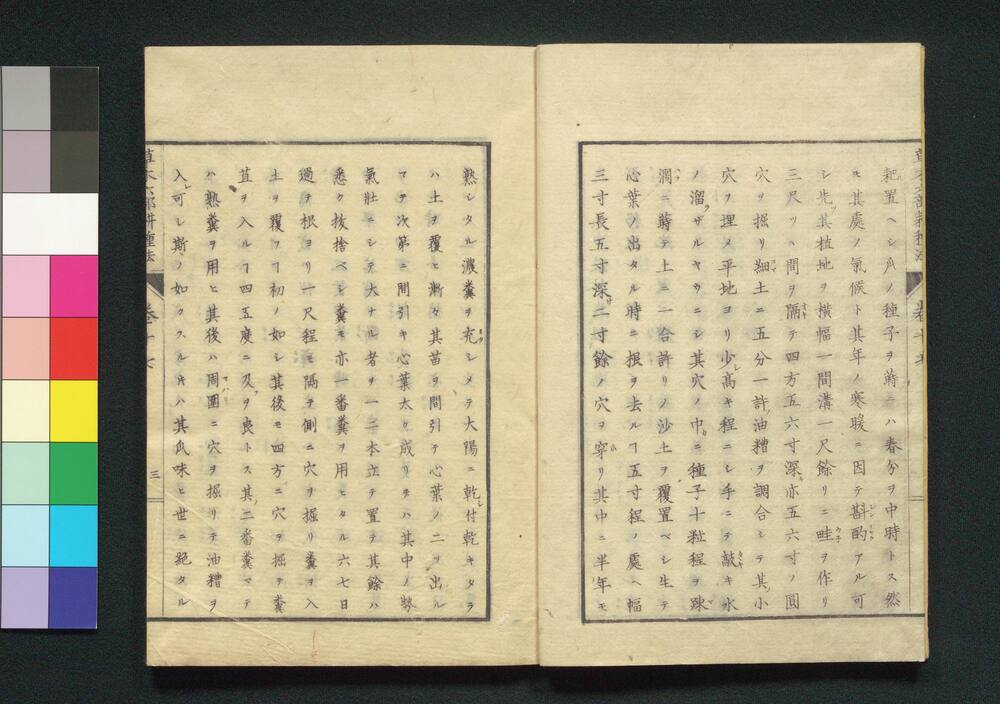 耙置ヘシ瓜ノ種子ヲ蒔ニハ春分ヲ中時トス然
モ其處ノ氣候ト其年ノ寒暖ニ因テ斟酌アル可
シ先其植地ヲ横幅一間溝一尺餘リニ畦ヲ作リ
三尺ツヽ間ヲ隔テ四方五六寸深亦五六寸ノ圓
穴ヲ掘リ細土ニ五分一許油糟ヲ調合シテ其小
穴ヲ埋メ平地ヨリ少高キ程ニシ手ニテ敲キ水
ノ溜ザルヤウニシ其穴ノ中ニ種子十粒程ヲ踈
潤ニ蒔テ上ニ一合許リノ沙土ヲ覆置ベシ生テ
心葉ノ出タル時ニ根ヲ去ルヿ五寸程ノ處ヘ幅
三寸長五寸深二寸餘ノ穴ヲ穿リ其中ニ半年モ
熟シタル濃糞ヲ充シメテ大陽ニ乾付乾キタラ
ハ土ヲ覆ヒ漸々其苗ヲ間引テ心葉ノ二ツ出ル
マテ次第ニ間引キ心葉太ク成リタハ其中ノ勢
氣壯ニシテ大ナル者ヲ一二本立テ置テ其餘ハ
悉ク拔捨ベシ糞モ亦一番糞ヲ用ヒタル六七日
過テ根ヨリ一尺程モ隔テ側ニ穴ヲ掘リ糞ヲ入
土ヲ覆フヿ初ノ如シ其後モ四方ニ穴ヲ掘テ糞
苴ヲ入ルヿ四五度ニ及ヲ良トス其二番糞マテ
ハ熟糞ヲ用ヒ其後ハ周圍ニ穴ヲ掘リテ油糟ヲ
入可シ斯ノ如クスルキハ其瓜味ヒ世ニ絶タル
三